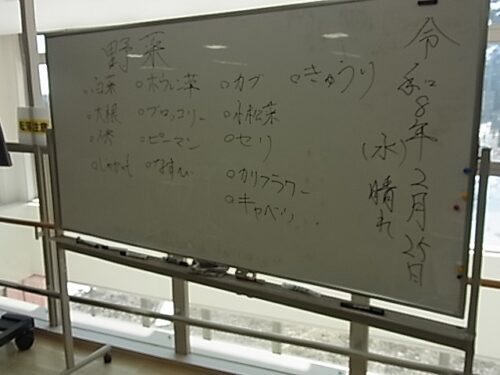 令和8年2月25日
(水)
晴れ
野菜
○白菜
○大根
○じゃがいも
○ホウレン草
○ブロッコリー
○ピーマン
○なすび
○カブ
○小松菜
○セリ
○カリフラワー
○キャベツ
○きゅうり